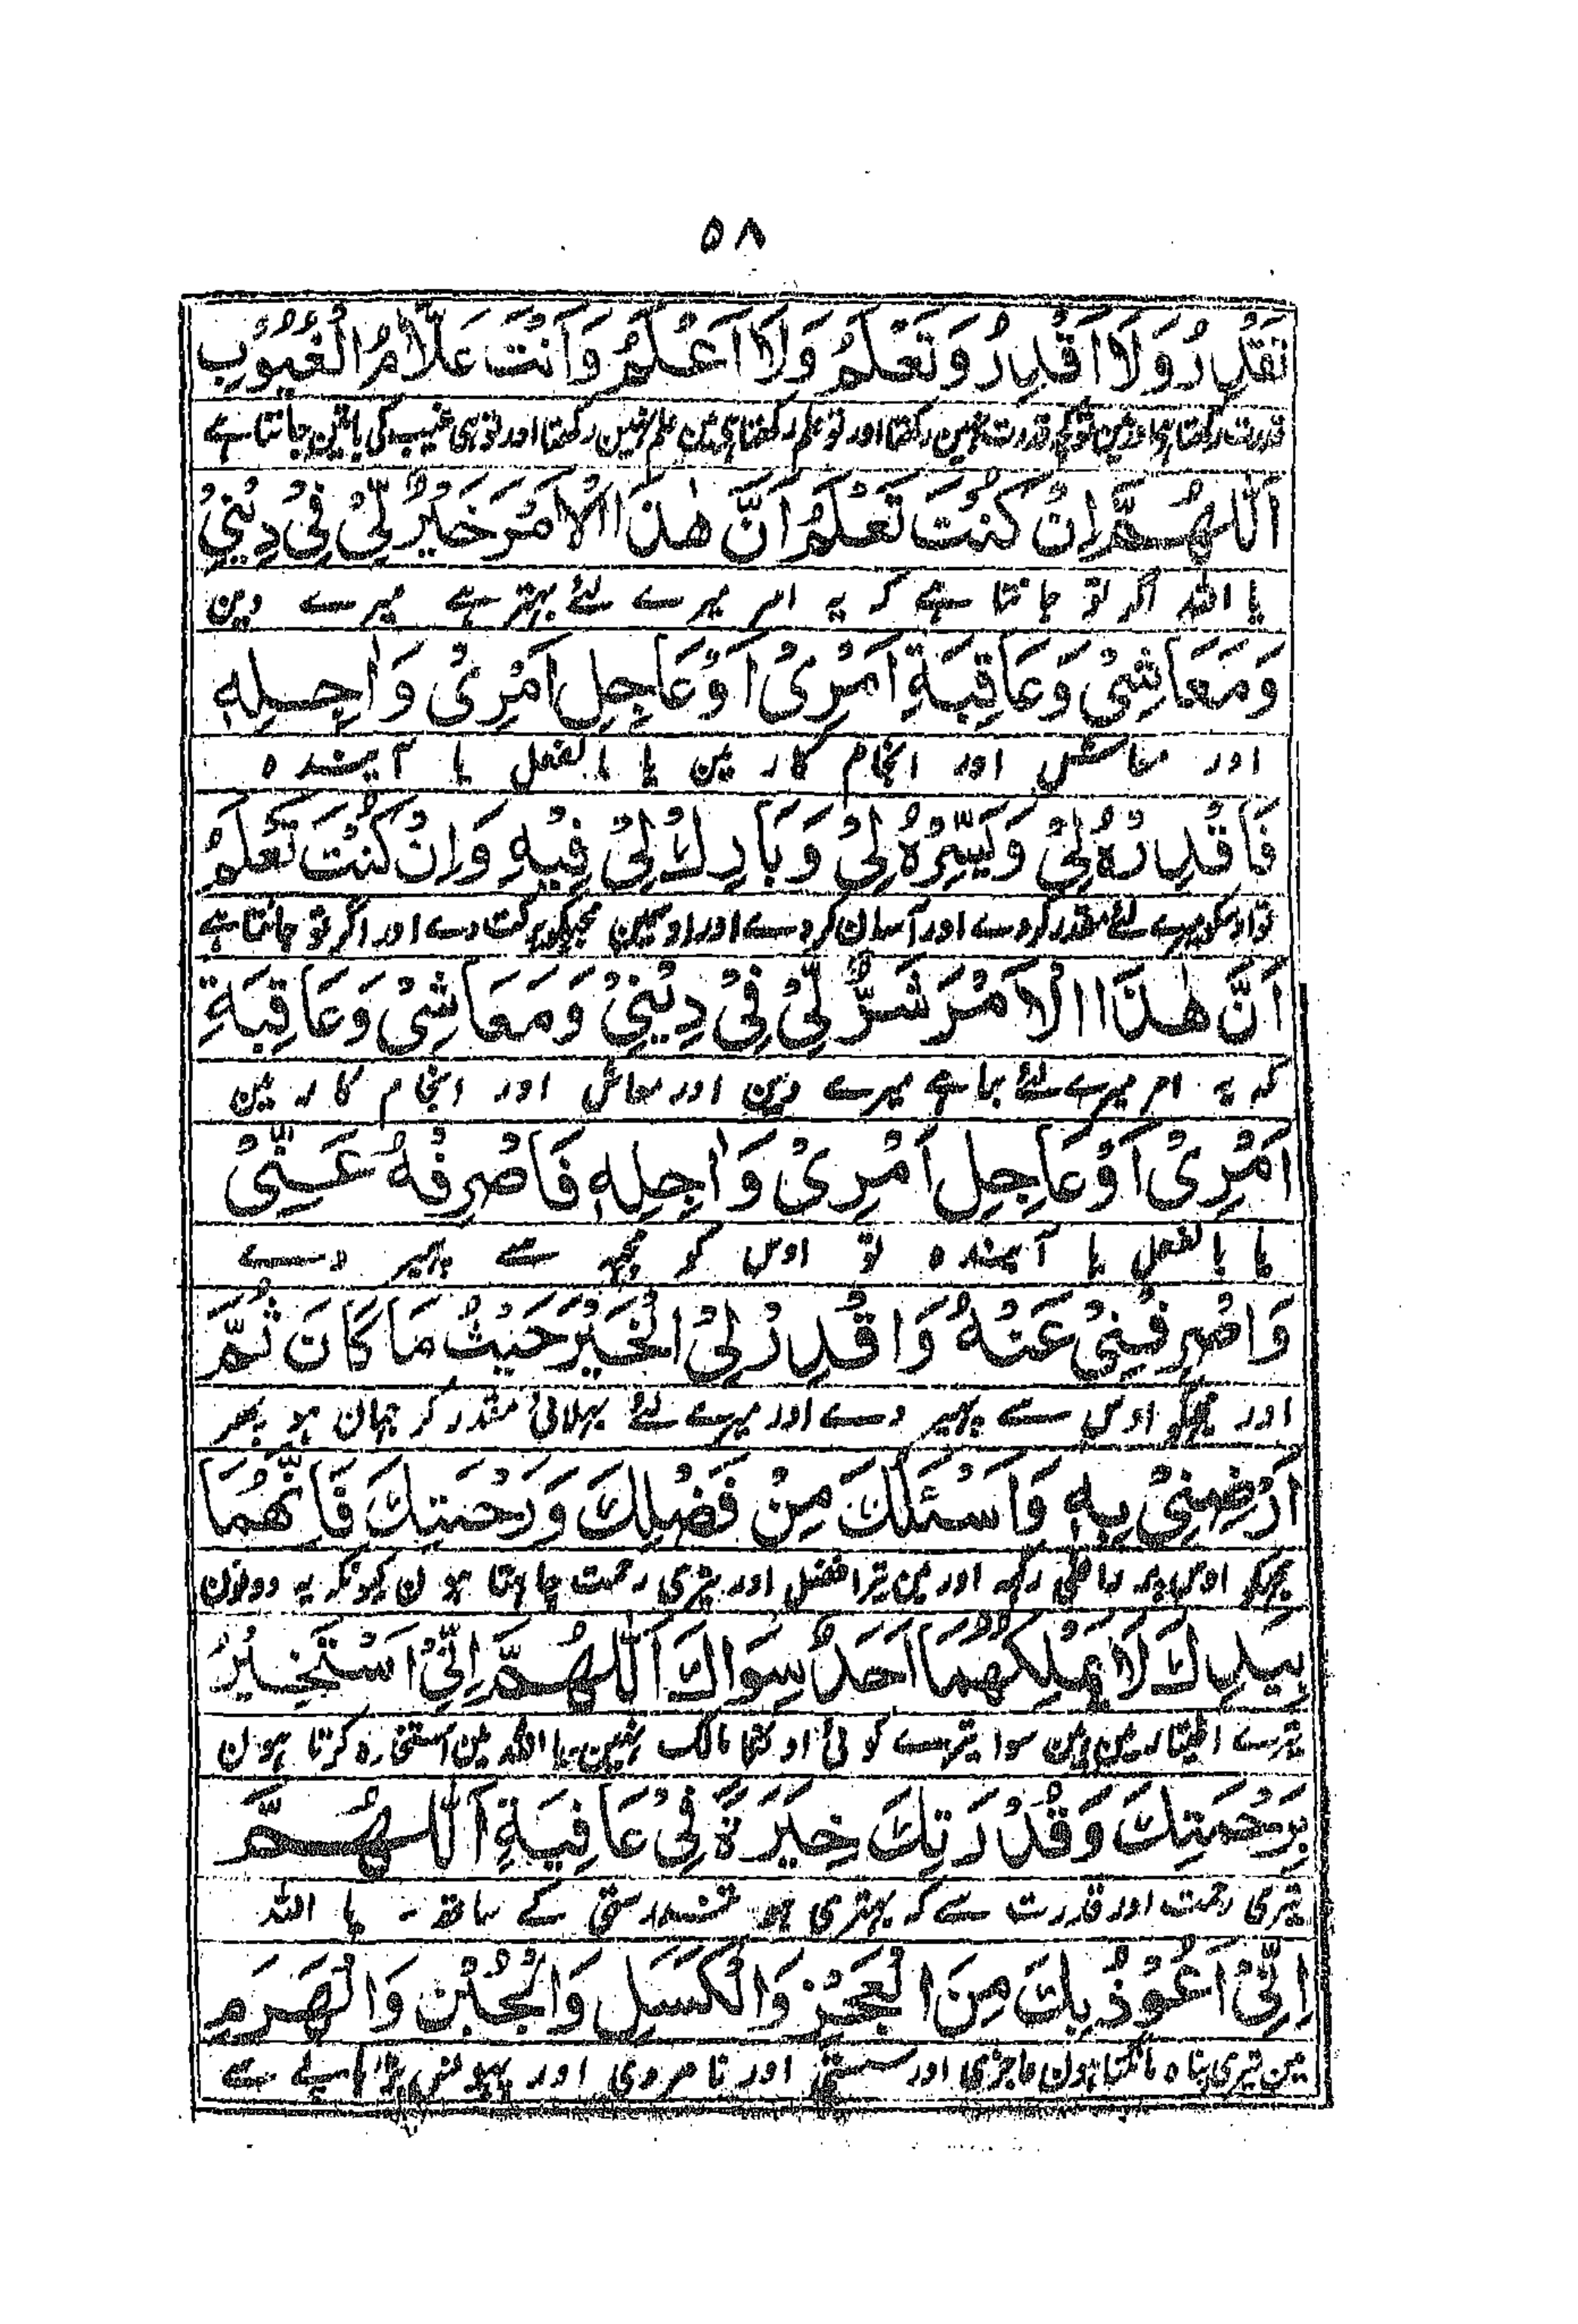 ۵۸
تَقْدِرُ وَلَا اَقْدِرُ وَتَعْلَمُ وَلَا اَعْلَمُ وَاَنْتَ عَلَّامُ الْغُيُوْبِ
قدرت رکھتا ہی اور مین قدرت نہین رکھتا اور تو علم رکھتا ہی مین علم نہین رکھتا اور تو ہی غیب کی باتین جانتا ہے
اَللّٰهُمَّ اِنْ كُنْتَ تَعْلَمُ اَنَّ هٰذَا الْاَمْرَ خَيْرٌ لِّيْ فِيْ دِيْنِيْ
یا اللہ اگر تو جانتا ہے کہ یہ امر میرے لئے بہتر ہے میرے دین
وَمَعَاشِيْ وَعَاقِبَةِ اَمْرِيْ اَوْ عَاجِلِ اَمْرِيْ وَاٰجِلِهٖ
اور معاش اور انجام کار مین یا بالفعل یا آیندہ
فَاقْدِرْهُ لِيْ وَيَسِّرْهُ لِيْ وَبَارِكْ لِيْ فِيْهِ وَاِنْ كُنْتَ تَعْلَمُ
تو اوسکو میرے لئے مقدر کردے اور آسان کردے اور اوسمین مجہکو برکت دے اور اگر تو جانتا ہے
اَنَّ هٰذَا الْاَمْرَ شَرٌّ لِّيْ فِيْ دِيْنِيْ وَمَعَاشِيْ وَعَاقِبَةِ
کہ یہ امر میرے لئے برا ہے میرے دین اور معاش اور انجام کار مین
اَمْرِيْ اَوْ عَاجِلِ اَمْرِيْ وَاٰجِلِهٖ فَاصْرِفْهُ عَنِّيْ
یا بالفعل یا آیندہ تو اوس کو مجہہ سے پہیر دے
وَاصْرِفْنِيْ عَنْهُ وَاقْدِرْ لِيَ الْخَيْرَ حَيْثُ مَا كَانَ ثُمَّ
اور مجہکو اوس سے پہیر دے اور میرے لئے بہلائی مقدر کر جہان ہو پہر
اَرْضِنِيْ بِهٖ وَاَسْئَلُكَ مِنْ فَضْلِكَ وَرَحْمَتِكَ فَاِنَّهُمَا
مجہکو اوس پر راضی رکہہ اور مین تیرا فضل اور تیری رحمت چاہتا ہون کیونکہ یہ دونون
بِيَدِكَ لَا يَمْلِكُهُمَا اَحَدٌ سِوَاكَ اَللّٰهُمَّ اِنِّيْ اَسْتَخِيْرُكَ
تیرے اختیار مین ہین سوا تیرے کوئی اونکا مالک نہین یا اللہ مین استخارہ کرتا ہون
بِرَحْمَتِكَ وَقُدْرَتِكَ خِيَرَةً فِيْ عَافِيَةٍ اَللّٰهُمَّ
تیری رحمت اور قدرت سے کہ بہتری ہو تندرستی کے ساتھ - یا اللہ
اِنِّيْ اَعُوْذُ بِكَ مِنَ الْعَجْزِ وَالْكَسَلِ وَالْجُبْنِ وَالْهَرَمِ
مین تیری پناہ مانگتا ہون عاجزی اور سستی اور نامردی اور بڑہاپے سے